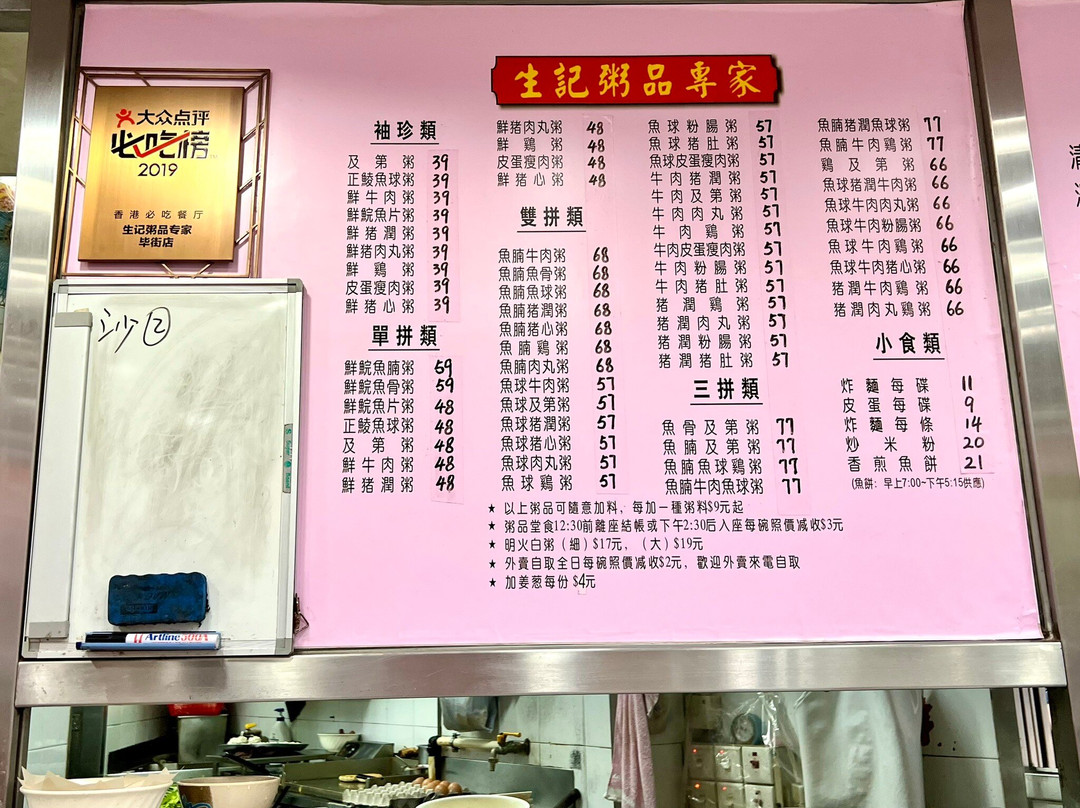 大众点评
必吃榜
2019
香港必吃餐厅
生记粥品专家
毕街店
沙②
Artline 500A
生記粥品專家
袖珍類
及第粥 39
正鯪魚球粥 39
鮮牛肉粥 39
鮮鯇魚片粥 39
鮮豬潤粥 39
鮮豬肉丸粥 39
鮮鷄粥 39
皮蛋瘦肉粥 39
鮮豬心粥 39
單拼類
鮮鯇魚腩粥 59
鮮鯇魚骨粥 59
鮮鯇魚片粥 48
正鯪魚球粥 48
及第粥 48
鮮牛肉粥 48
鮮豬潤粥 48
鮮豬肉丸粥 48
鮮鷄粥 48
皮蛋瘦肉粥 48
鮮豬心粥 48
雙拼類
魚腩牛肉粥 68
魚腩魚骨粥 68
魚腩魚球粥 68
魚腩豬潤粥 68
魚腩豬心粥 68
魚腩鷄粥 68
魚腩肉丸粥 68
魚球牛肉粥 57
魚球及第粥 57
魚球豬潤粥 57
魚球豬心粥 57
魚球肉丸粥 57
魚球鷄粥 57
魚球粉腸粥 57
魚球豬肚粥 57
魚球皮蛋瘦肉粥 57
牛肉豬潤粥 57
牛肉及第粥 57
牛肉肉丸粥 57
牛肉鷄粥 57
牛肉皮蛋瘦肉粥 57
牛肉粉腸粥 57
牛肉豬肚粥 57
豬潤鷄粥 57
豬潤肉丸粥 57
豬潤粉腸粥 57
豬潤豬肚粥 57
三拼類
魚骨及第粥 77
魚腩及第粥 77
魚腩魚球鷄粥 77
魚腩牛肉魚球粥 77
魚腩豬潤魚球粥 77
魚腩牛肉鷄粥 77
鷄及第粥 66
魚球豬潤牛肉粥 66
魚球牛肉肉丸粥 66
魚球牛肉粉腸粥 66
魚球牛肉鷄粥 66
魚球牛肉豬心粥 66
豬潤牛肉鷄粥 66
豬潤肉丸鷄粥 66
小食類
炸麵每碟 11
皮蛋每碟 9
炸麵每條 14
炒米粉 20
香煎魚餅 21
(魚餅：早上7:00~下午5:15供應)
★ 以上粥品可隨意加料，每加一種粥料$9元起
★ 粥品堂食12:30前離座結帳或下午2:30后入座每碗照價減收$3元
★ 明火白粥（細）$17元，（大）$19元
★ 外賣自取全日每碗照價減收$2元，歡迎外賣來電自取
★ 加姜葱每份 $4元